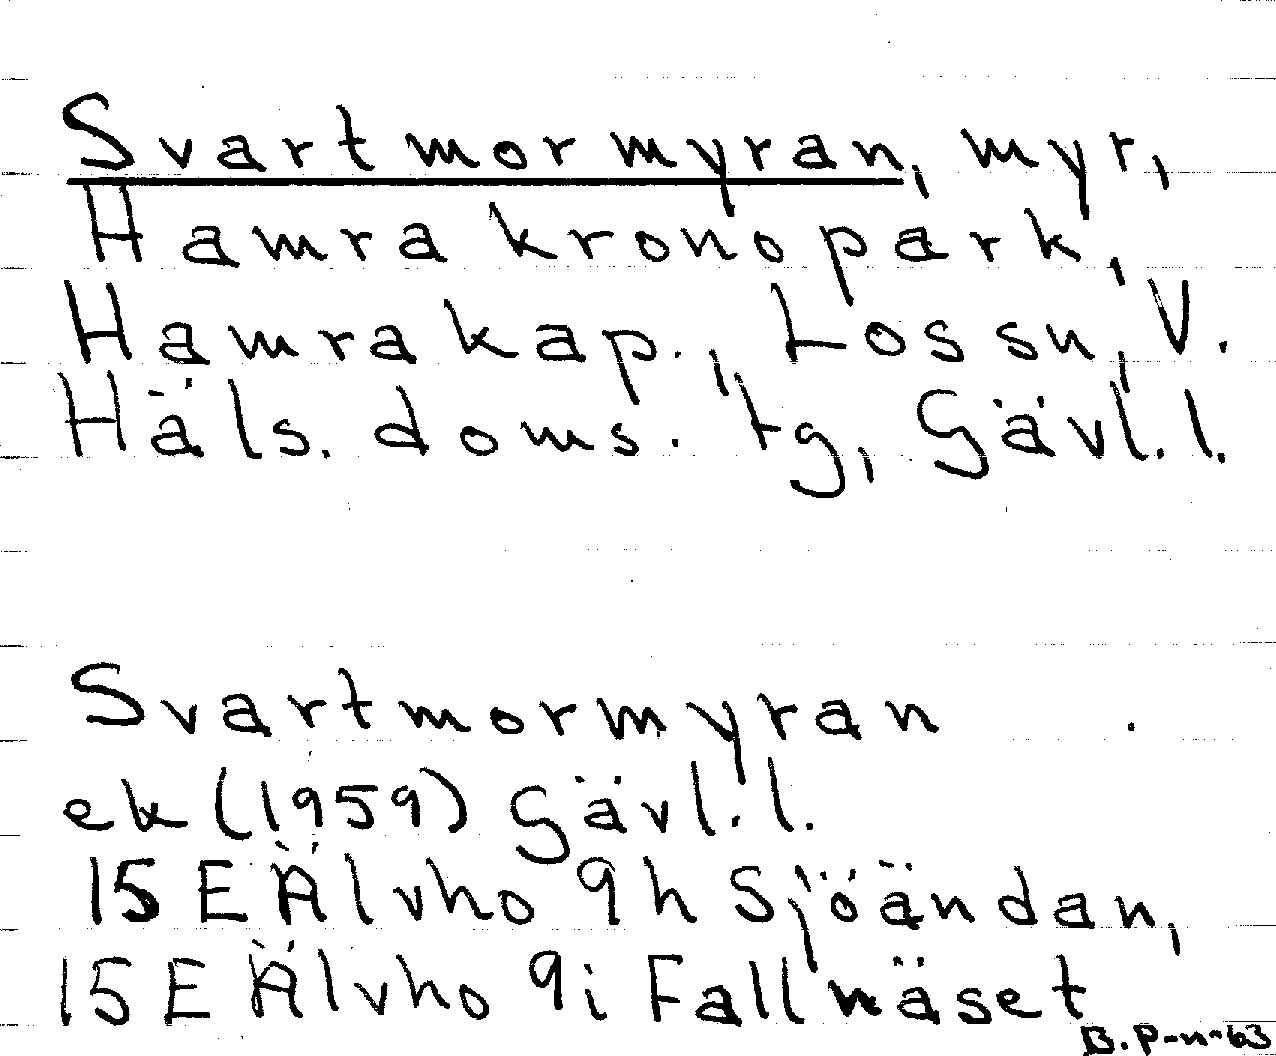 Svartmormyran, myr,
Hamra kronopark,
Hamra kap., Los sn, V.
Häls. doms. tg, Gävl. l.
Svartmormyran
ek (1959) Gävl. l.
15 E Älvho 9 h Sjöändan,
15 E Älvho 9 i Fallnäset
B. P-n-63